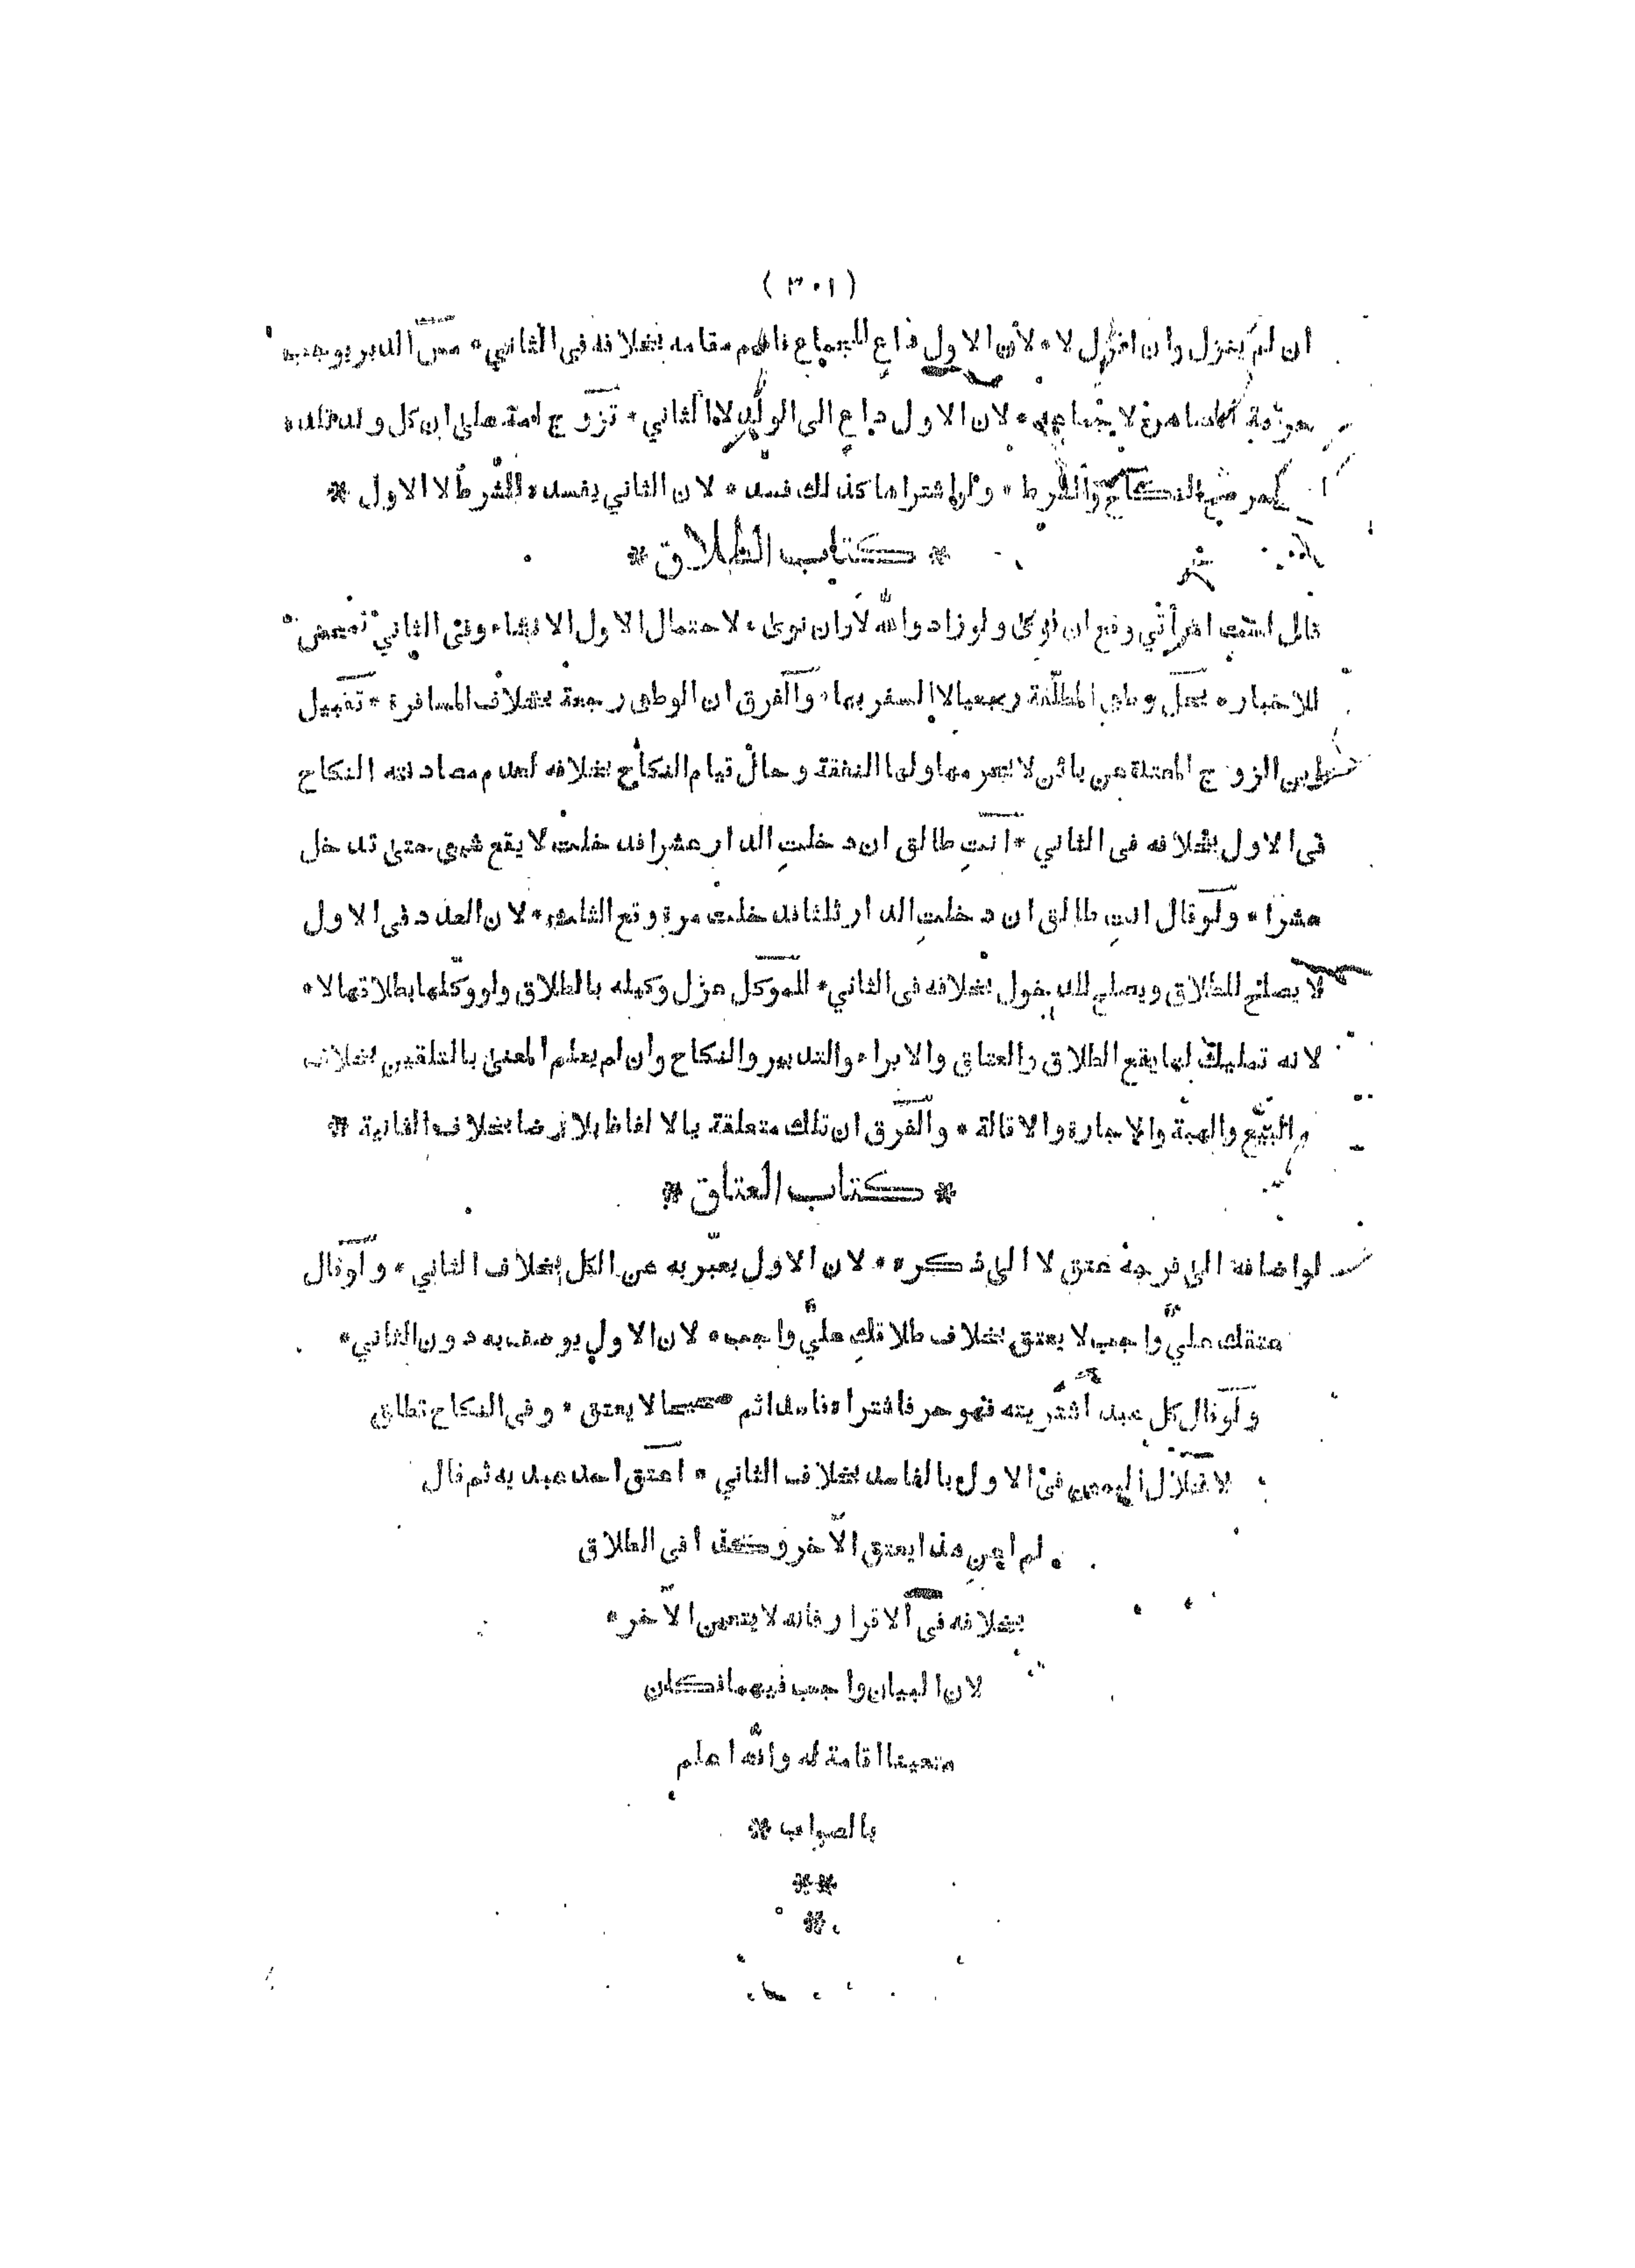 ( ٣٠١ )
ان لم ينزل وان انزل لا * لأن الاول داع للجماع فاقيم مقامه بخلافه فى الثاني * مس الدبر يوجب
حرمة المصاهرة لا جماعه * لان الاول داع الى الولد لا الثاني * تزوج امة على ان كل ولد تلده
حر صح النكاح والشرط * ولو اشتراها كذلك فسد * لان الثاني يفسد بالشرط لا الاول *
* كتاب الطلاق *
قال لست امرأتي وقع ان نوى ولو زاد والله لا وان نوى * لاحتمال الاول الانشاء وفى الثاني تمحض
للاخبار * يحل وطى المطلقة رجعيا لا السفر بها * والفرق ان الوطى رجعة بخلاف المسافرة * تقبيل
ابن الزوج المعتدة عن بائن لا يحرمها ولها النفقة وحال قيام النكاح بخلافه لعدم مصادفته النكاح
فى الاول بخلافه فى الثاني * انتِ طالق ان دخلتِ الدار عشرا فدخلت لا يقع شيء حتى تدخل
عشرا * ولو قال انتِ طالق ان دخلتِ الدار ثلثا فدخلت مرة وقع الثلث * لان العدد فى الاول
لا يصلح للطلاق ويصلح للدخول بخلافه فى الثاني * للموكل عزل وكيله بالطلاق ولو وكّلها بطلاقها لا *
لانه تمليك لها يقع الطلاق والعتاق والابراء والتدبير والنكاح وان لم يعلم المعنى بالتلقين بخلاف
والبيع والهبة والاجارة والاقالة * والفرق ان تلك متعلقة بالالفاظ بلا رضا بخلاف الثانية *
* كتاب العتاق *
لو اضافه الى فرجه عتق لا الى ذكره * لان الاول يعبّر به عن الكل بخلاف الثاني * ولو قال
عتقك عليّ واجب لا يعتق بخلاف طلاقكِ عليّ واجب * لان الاول يوصف به دون الثاني *
ولو قال كل عبد اشتريته فهو حر فاشتراه فاسدا ثم صحيحا لا يعتق * وفى النكاح تطلق
لانحلال اليمين فى الاول بالفاسد بخلاف الثاني * اعتق احد عبديه ثم قال
لم اعن هذا يعتق الآخر وكذا فى الطلاق
بخلافه فى الاقرار فانه لا يتعين الآخر *
لان البيان واجب فيهما فكان
متعينا اقامة له والله اعلم
بالصواب *
**
*